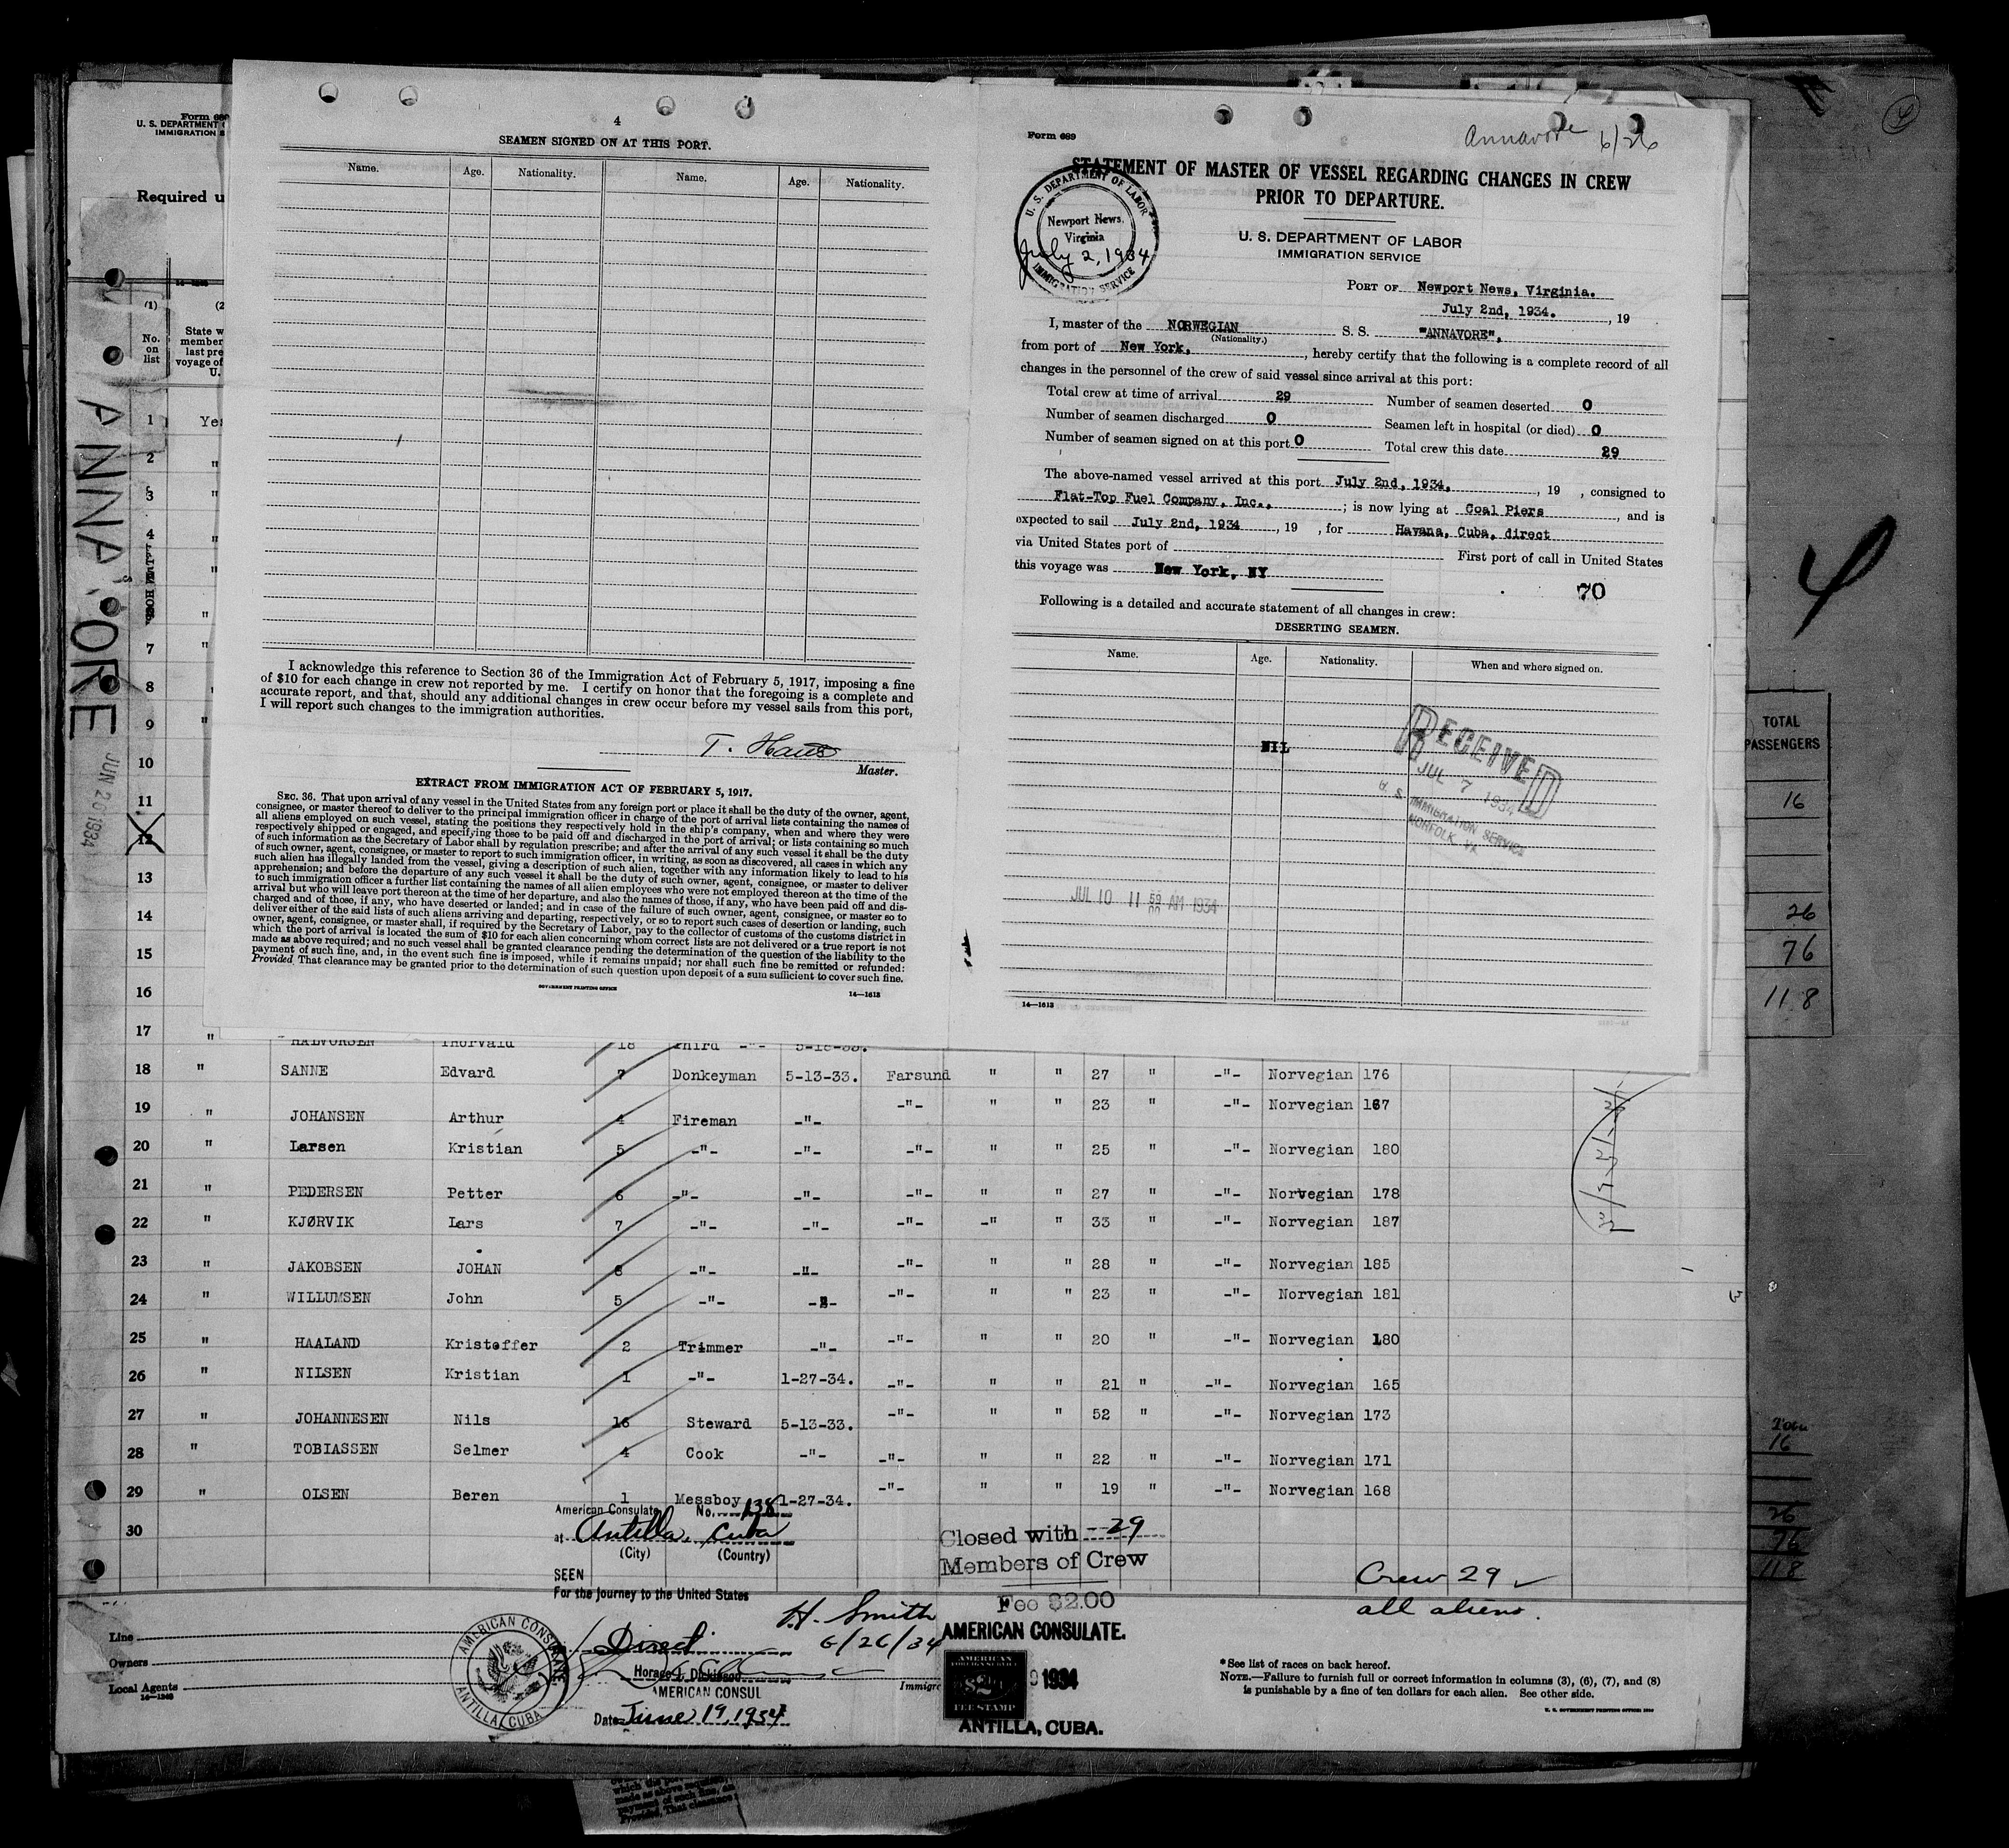 4
SEAMEN SIGNED ON AT THIS PORT.
Name. Age. Nationality. Name. Age. Nationality.
I acknowledge this reference to Section 36 of the Immigration Act of February 5, 1917, imposing a fine
of $10 for each change in crew not reported by me. I certify on honor that the foregoing is a complete and
accurate report, and that, should any additional changes in crew occur before my vessel sails from this port,
I will report such changes to the immigration authorities.
Master.
EXTRACT FROM IMMIGRATION ACT OF FEBRUARY 5, 1917.
SEC. 36. That upon arrival of any vessel in the United States from any foreign port or place it shall be the duty of the owner, agent,
consignee, or master thereof to deliver to the principal immigration officer in charge of the port of arrival lists containing the names of
all aliens employed on such vessel, stating the positions they respectively hold in the ship's company, when and where they were
respectively shipped or engaged, and specifying those to be paid off and discharged in the port of arrival; or lists containing so much
of such information as the Secretary of Labor shall by regulation prescribe; and after the arrival of any such vessel it shall be the duty
of such owner, agent, consignee, or master to report to such immigration officer, in writing, as soon as discovered, all cases in which any
such alien has illegally landed from the vessel, giving a description of such alien, together with any information likely to lead to his
apprehension; and before the departure of any such vessel it shall be the duty of such owner, agent, consignee, or master to deliver
to such immigration officer a further list containing the names of all alien employees who were not employed thereon at the time of the
arrival but who will leave port thereon at the time of her departure, and also the names of those, if any, who have been paid off and dis-
charged and of those, if any, who have deserted or landed; and in case of the failure of such owner, agent, consignee, or master so to
deliver either of the said lists of such aliens arriving and departing, respectively, or so to report such cases of desertion or landing, such
owner, agent, consignee, or master shall, if required by the Secretary of Labor, pay to the collector of customs of the customs district in
which the port of arrival is located the sum of $10 for each alien concerning whom correct lists are not delivered or a true report is not
made as above required; and no such vessel shall be granted clearance pending the determination of the question of the liability to the
payment of such fine, and, in the event such fine is imposed, while it remains unpaid; nor shall such fine be remitted or refunded:
Provided, That clearance may be granted prior to the determination of such question upon deposit of a sum sufficient to cover such fine.
GOVERNMENT PRINTING OFFICE 14—1613
Form 689
Annavore 6/26
STATEMENT OF MASTER OF VESSEL REGARDING CHANGES IN CREW
PRIOR TO DEPARTURE.
U. S. DEPARTMENT OF LABOR
IMMIGRATION SERVICE
U. S. DEPARTMENT OF LABOR
Newport News,
Virginia
July 2, 1934
IMMIGRATION SERVICE
PORT OF Newport News, Virginia.
July 2nd, 1934. , 19
I, master of the NORWEGIAN S. S. "ANNAVORE",
(Nationality.)
from port of New York, , hereby certify that the following is a complete record of all
changes in the personnel of the crew of said vessel since arrival at this port:
Total crew at time of arrival 29 Number of seamen deserted 0
Number of seamen discharged 0 Seamen left in hospital (or died) 0
Number of seamen signed on at this port 0 Total crew this date 29
The above-named vessel arrived at this port July 2nd, 1934, , 19 , consigned to
Flat-Top Fuel Company, Inc., ; is now lying at Coal Piers , and is
expected to sail July 2nd, 1934 , 19 , for Havana, Cuba, direct
via United States port of First port of call in United States
this voyage was New York, NY
70
Following is a detailed and accurate statement of all changes in crew:
DESERTING SEAMEN.
Name. Age. Nationality. When and where signed on.
NIL
RECEIVED
JUL 7 1934
U. S. IMMIGRATION SERVICE
NORFOLK, VA
JUL 10 11 59 AM 1934
14—1613
Form 689
U. S. DEPARTMENT
IMMIGRATION S
Required u
(1) (2
No.
on
list
State w
member
last pre
voyage of
U.
JUN 26 1934
1 Yes
2 "
3 "
4 "
7 "
8
9 "
10
11
12
13
14
15
16
17 " HALVORSEN Thorvald 18 Third -"- 5-18-33.
18 " SANNE Edvard 7 Donkeyman 5-13-33. Farsund " " 27 " -"- Norvegian 176
19 " JOHANSEN Arthur 4 Fireman -"- -"- " " 23 " -"- Norvegian 167
20 " Larsen Kristian 5 -"- -"- -"- " " 25 " -"- Norvegian 180
21 " PEDERSEN Petter 6 -"- -"- -"- " " 27 " -"- Norvegian 178
22 " KJØRVIK Lars 7 -"- -"- -"- -" " 33 " -"- Norvegian 187
23 " JAKOBSEN JOHAN 8 -"- -"- -"- " " 28 " -"- Norvegian 185
24 " WILLUMSEN John 5 -"- -"- -"- " " 23 " -"- Norvegian 181
25 " HAALAND Kristoffer 2 Trimmer -"- -"- " " 20 " -"- Norvegian 180
26 " NILSEN Kristian 1 -"- 1-27-34. -"- " " 21 " -"- Norvegian 165
27 " JOHANNESEN Nils 16 Steward 5-13-33. -"- " " 52 " -"- Norvegian 173
28 " TOBIASSEN Selmer 4 Cook -"- -"- " " 22 " -"- Norvegian 171
29 " OLSEN Beren 1 Messboy 1-27-34. -"- " " 19 " -"- Norvegian 168
30
American Consulate No. 138
at Antilla, Cuba
(City) (Country)
SEEN
For the journey to the United States
Direct
Horace J. Dickinson
AMERICAN CONSUL
Date June 19, 1934
AMERICAN CONSULATE
ANTILLA, CUBA
H. Smith
6/26/34
Immigra
Closed with 29
Members of Crew
Fee $2.00
AMERICAN CONSULATE.
AMERICAN
FOREIGN SERVICE
$2
FEE STAMP
9 1934
ANTILLA, CUBA.
Crew 29 ✓
all aliens.
Line
Owners
Local Agents
14—1240
* See list of races on back hereof.
NOTE.—Failure to furnish full or correct information in columns (3), (6), (7), and (8)
is punishable by a fine of ten dollars for each alien. See other side.
TOTAL
PASSENGERS
16
26
76
118
Total
16
26
76
118
4